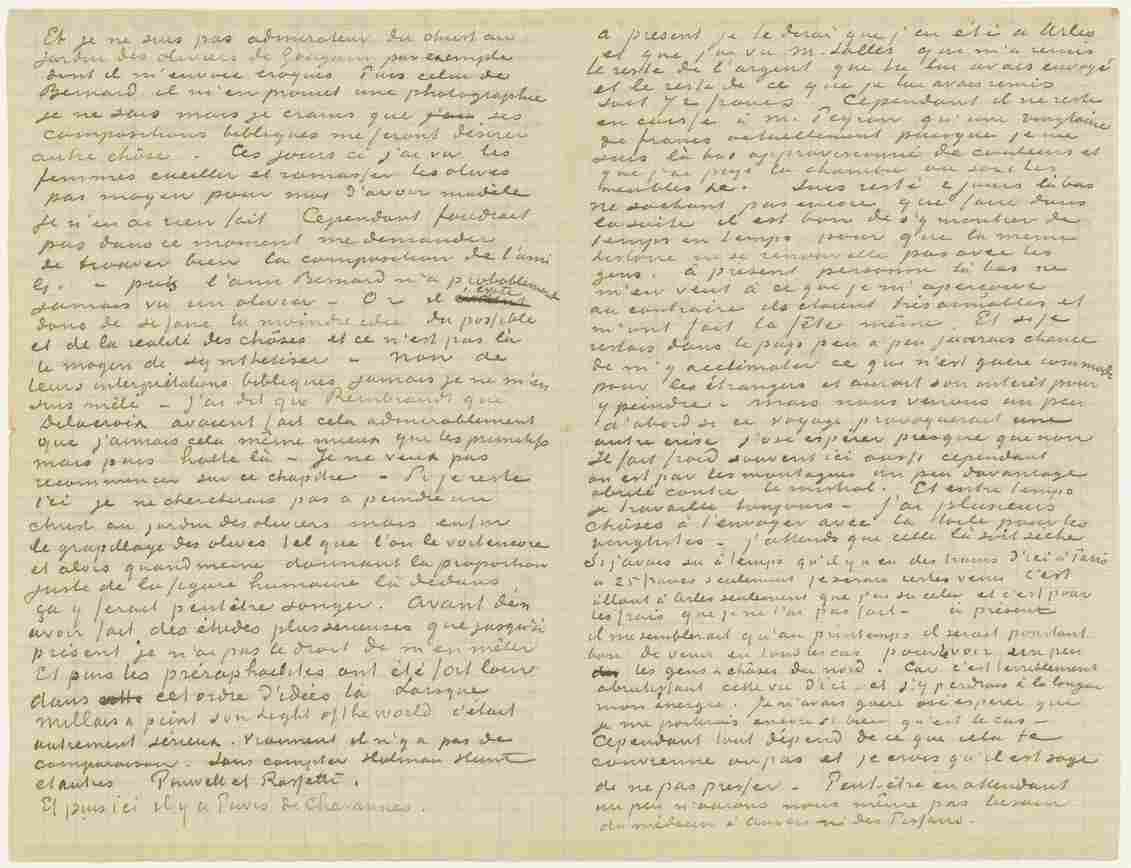 Et je ne suis pas admirateur du christ au
jardin des oliviers de Gauguin par exemple
dont il m'envoie croquis. Puis celui de
Bernard il m'en promet une photographie
je ne sais mais je crains que ses
compositions bibliques me feront désirer
autre chôse. Ces jours ci j'ai vu les
femmes cueillir et ramasser les olives
pas moyen pour moi d'avoir modèle
je n'en ai rien fait. Cependant faudrait
pas dans ce moment me demander
de trouver bien la composition de l'ami
G. – puis l'ami Bernard n'a probablement
jamais vu un olivier – Or il évite
donc de se faire la moindre idée du possible
et de la realité des chôses et ce n'est pas là
le moyen de synthetiser – Non de
leurs interprétations bibliques jamais je ne m'en
suis mêlé – J'ai dit que Rembrandt que
Delacroix avaient fait cela admirablement
que j'aimais cela même mieux que les primitifs
mais puis halte là – Je ne veux pas
recommencer sur ce chapitre – Si je reste
ici je ne chercherais pas a peindre un
christ au jardin des oliviers mais enfin
le grapillage des olives tel que l'on le voit encore
et alors quand meme donnant la proportion
juste de la figure humaine là dedans
ça y ferait peut être songer. Avant d'en
avoir fait des études plus serieuses que jusqu'ici
présent je n'ai pas le droit de m'en mêler
Et puis les préraphaelites ont été fort loin
dans cet ordre d'idées là Lorsque
Millais a peint son Light of the world c'était
autrement sérieux. Vraiment il n'y a pas de
comparaison. Sans compter Holman Hunt
et autres Pinwell et Rossetti.
Et puis ici il y a Puvis de Chavannes.
a présent je te dirai que j'en été a Arles
et que j'ai vu M. Salles qui m'a remis
le reste de l'argent que tu lui avais envoyé
et le reste de ce que je lui avais remis
soit 72 francs. Cependant il ne reste
en caisse à M. Peyron qu'une vingtaine
de francs actuellement puisque je me
suis là bas approvisionné de couleurs et
que j'ai payé la chambre ou sont les
meubles &c. Suis resté 2 jours là bas
ne sachant pas encore que faire dans
la suite il est bon de s'y montrer de
temps en temps pour que la même
histoire ne se renouvelle pas avec les
gens. à présent personne là bas ne
m'en veut à ce que je m'aperçoive
au contraire ils étaient très aimables et
m'ont fait la fête même. Et si je
restais dans le pays peu a peu j'aurais chance
de m'y acclimater ce qui n'est guère commode
pour les étrangers et aurait son intérêt pour
y peindre – mais nous verrons un peu
d'abord si ce voyage provoquerait une
autre crise j'ose espérer presque que non
Il fait froid souvent ici aussi cependant
on est par les montagnes un peu davantage
abrité contre le mistral. Et entre temps
je travaille toujours – J'ai plusieurs
chôses à t'envoyer avec la toile pour les
vingtistes – j'attends que celle là soit sèche
Si j'avais su à temps qu'il y a eu des trains d'ici à Paris
a 25 francs seulement je serais certes venu c'est
allant à Arles seulement que j'ai su cela et c'est pour
les frais que je ne l'ai pas fait – à présent
il me semblerait qu'au printemps il serait pourtant
bon de venir en tous les cas pour voir un peu
les gens & chôses du nord. Car c'est terriblement
abrutissant cette vie d'ici et j'y perdrais à la longue
mon énergie. Je n'avais guère osé esperer que
je me porterais encore si bien qu'est le cas –
Cependant tout dépend de ce que cela te
convienne ou pas et je crois qu'il est sage
de ne pas presser – Peut-être en attendant
un peu n'aurons nous même pas besoin
du médecin d'Auvers ni des Pissarro.